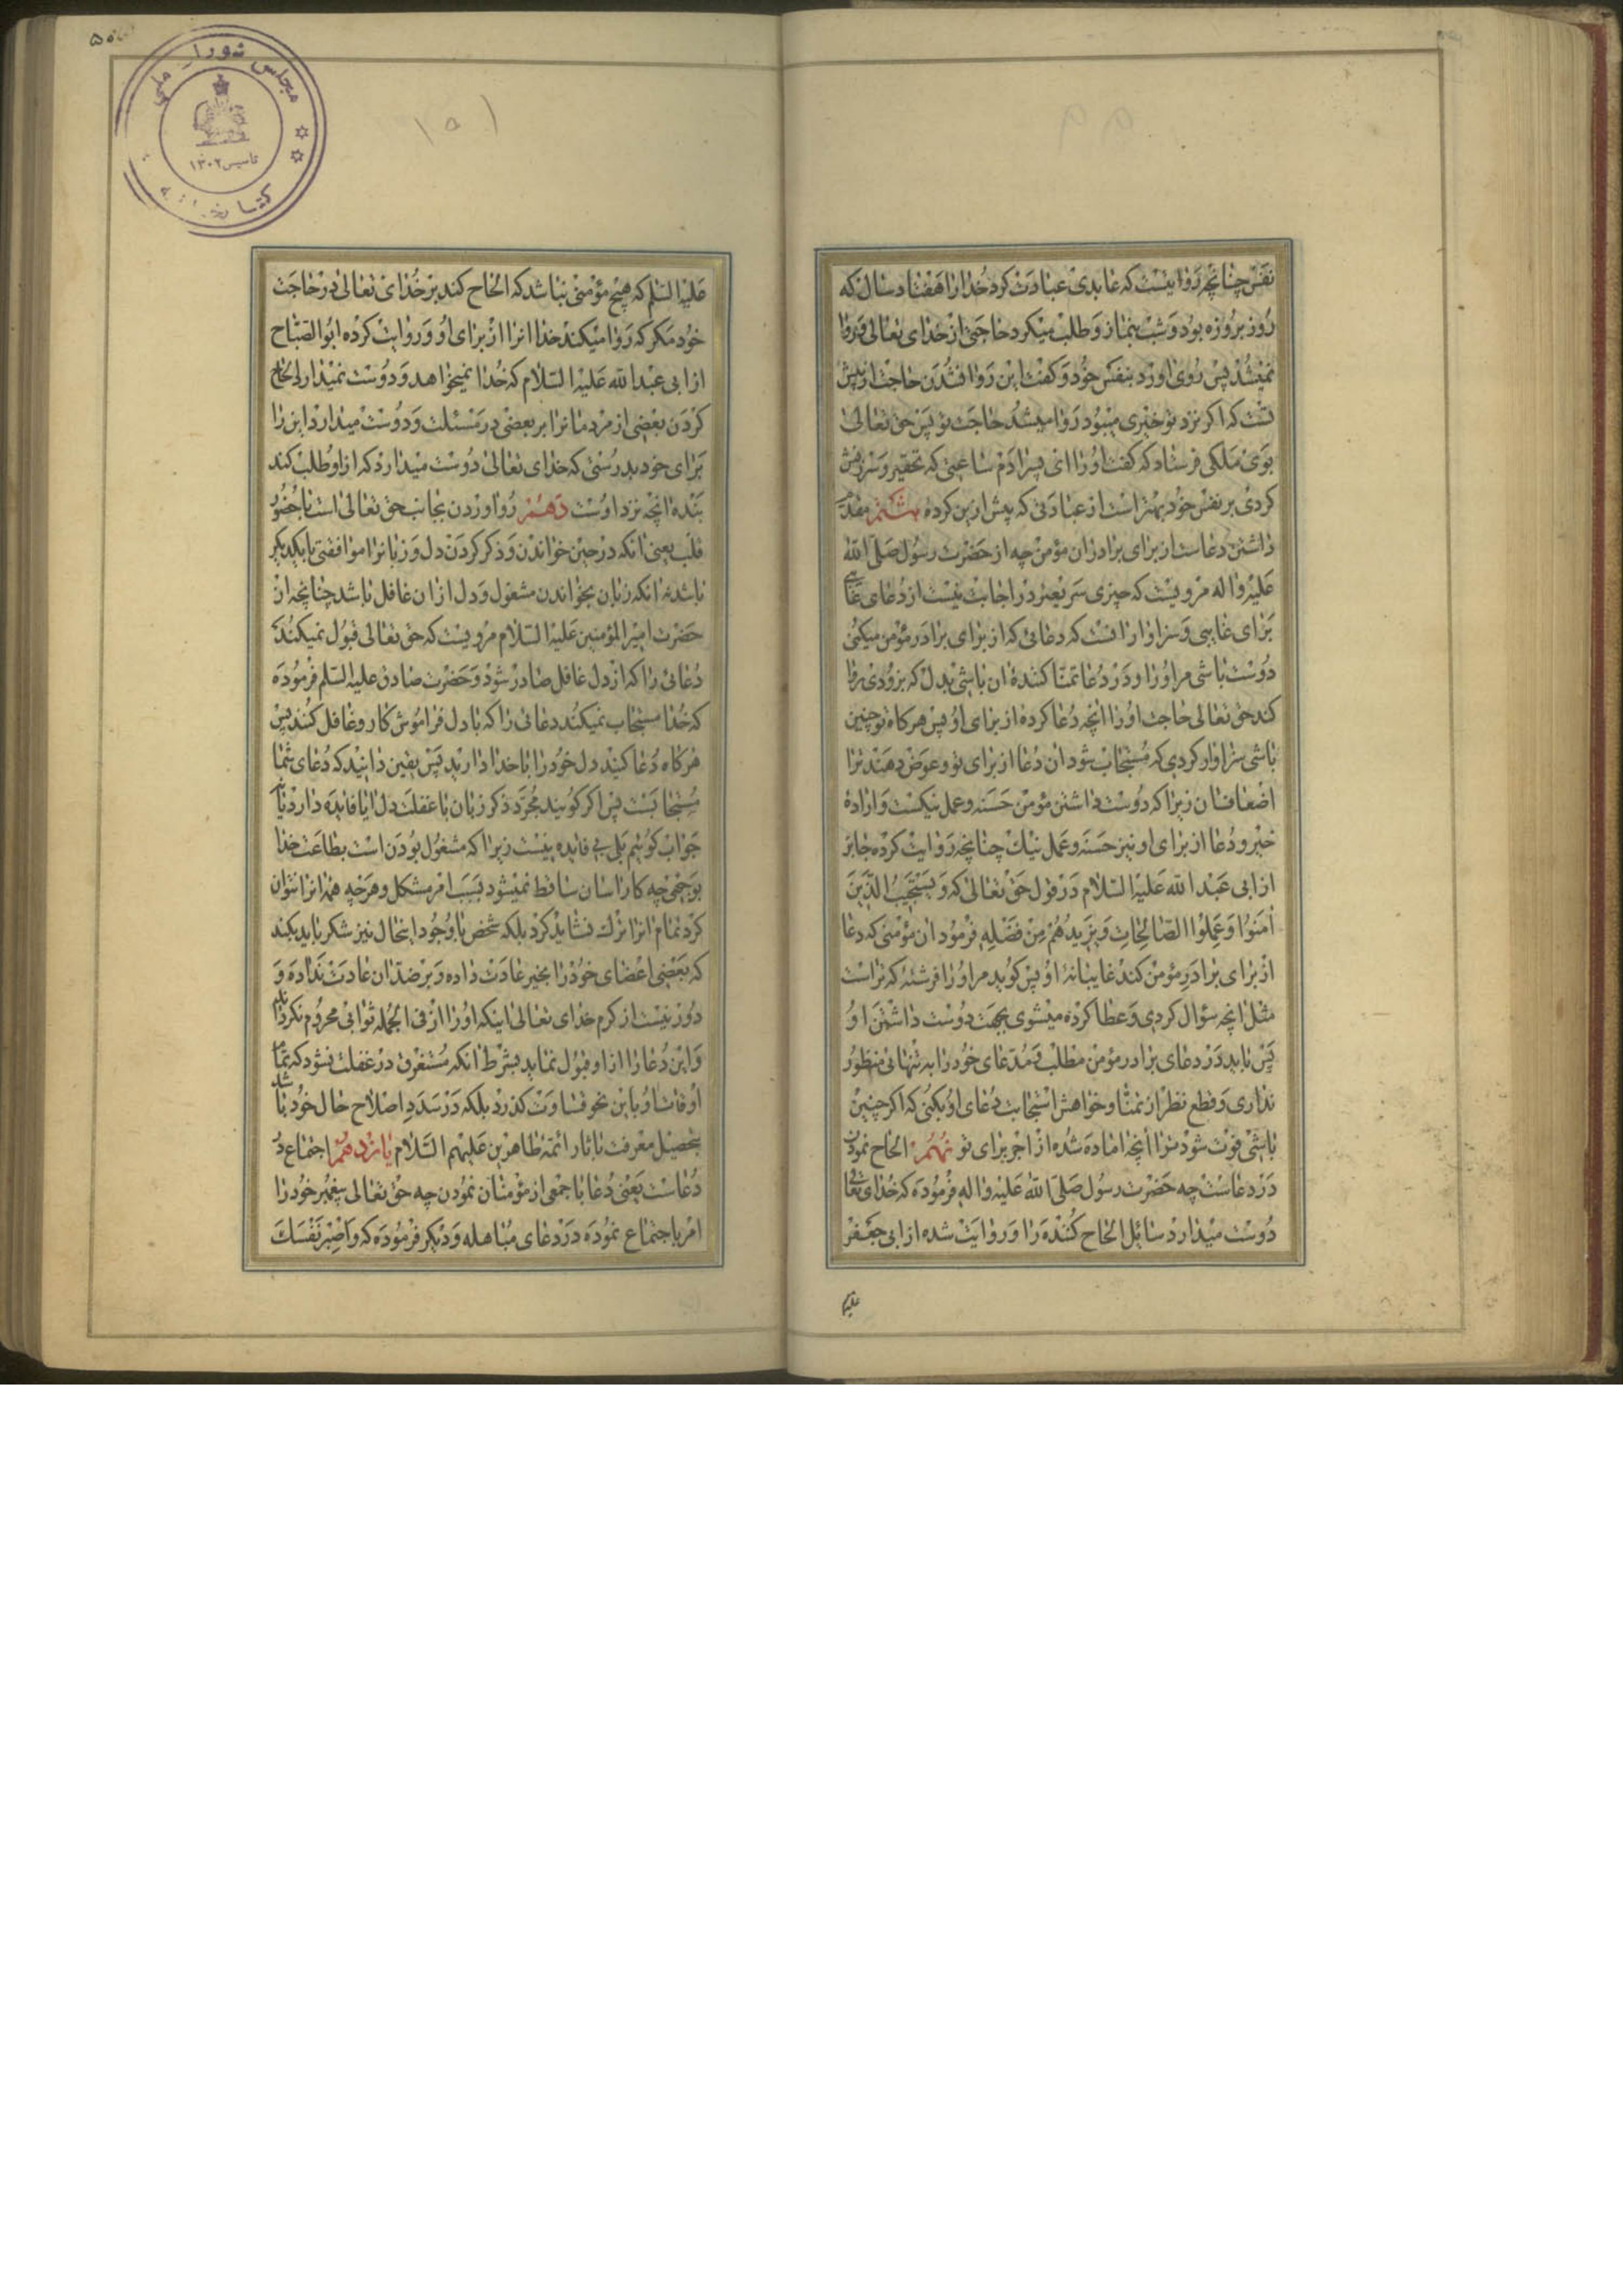 نفس چنانچه روایتست که عابدی عبادت کرد خدا را هفتاد سال که
روز بروزه بود و شب بنماز و طلب میکرد حاجتی از خدای تعالی و روا
نمیشد پس روی اورد بنفس خود و کفت این روا نشدن حاجت از پیش
تست که اکر نزد تو خیری میبود روا میشد حاجت تو پس حق تعالی
بوی ملکی فرستاد که کفت او را ای پسر ادم ساعتی که تحقیر و سرزنش
کردی بر نفس خود بهتر است از عبادتی که پیش ازین کردهٔ هشتم مقدم
داشتن دعاست از برای برادران مؤمن چه از حضرت رسول صلی الله
علیه و اله مرویست که چیزی سریعتر در اجابت نیست از دعای غایبی
برای غایبی و سزاوار انست که دعائی که از برای برادر مؤمن میکنی
دوست باشی مر او را و در دعا تمنا کنندهٔ ان باشی بدل که بزودی روا
کند حق تعالی حاجت او را انچه دعا کردهٔ از برای او پس هرکاه تو چنین
باشی سزاوار کردی که مستجاب شود ان دعا از برای تو و عوض دهند ترا
اضعاف ان زیرا که دوست داشتن مؤمن حسنه و عمل نیکست و ارادهٔ
خیر و دعا از برای او نیز حسنه و عمل نیک چنانچه روایت کرده جابر
از ابی عبد الله علیه السلام در قول حق تعالی که و یستجیب الذین
امنوا و عملوا الصالحات و یزیدهم من فضله فرمود ان مؤمنی که دعا
از برای برادر مؤمن کند غایبانهٔ او پس کوید مر او را فرشتهٔ که تراست
مثل انچه سؤال کردی و عطا کرده میشوی بجهت دوست داشتن او
پس باید در دعای برادر مؤمن مطلب و مدعای خود را به تنهائی منظور
نداری و قطع نظر از تمنا و خواهش استجابت دعای او بکنی که اکر چنین
باشی فوت شود ترا انچه اماده شده از اجر برای تو نهم الحاح نمودن
در دعاست چه حضرت رسول صلی الله علیه و اله فرموده که خدای تعالی
دوست میدارد سائل الحاح کننده را و روایت شده از ابی جعفر
علیه
مجلس شورای ملی
تاسیس ۱۳۰۲
کتابخانه
۱۵۱
علیه السلم که هیچ مؤمنی نباشد که الحاح کند بر خدای تعالی در حاجت
خود مکر که روا میکند خدا انرا از برای او و روایت کرده ابو الصباح
از ابی عبد الله علیه السلام که خدا نمیخواهد و دوست نمیدارد الحاح
کردن بعضی از مردمانرا بر بعضی در مسئلت و دوست میدارد این را
برای خود بدرستی که خدای تعالی دوست میدارد که از او طلب کند
بنده انچه نزد اوست دهم رو اوردن بجانب حق تعالی است با حضور
قلب یعنی انکه در حین خواندن و ذکر کردن دل و زبانرا موافقتی با یکدیکر
باشد نه انکه زبان بخواندن مشغول و دل از ان غافل باشد چنانچه از
حضرت امیر المؤمنین علیه السلام مرویست که حق تعالی قبول نمیکند
دعائی را که از دل غافل صادر شود و حضرت صادق علیه السلم فرموده
که خدا مستجاب نمیکند دعائی را که با دل فراموش کار و غافل کنند پس
هرکاه دعا کنید دل خود را با خدا دارید پس یقین دانید که دعای شما
مستجابست پس اکر کویند مجرد ذکر زبان با غفلت دل ایا فایده دارد یا نه
جواب کوئیم بلی بی فایده نیست زیرا که مشغول بودن است بطاعت خدا
بوجهی چه کار اسان ساقط نمیشود بسبب امر مشکل و هرچه همه انرا نتوان
کرد تمام انرا ترک نشاید کرد بلکه شخص با وجود اینحال نیز شکر باید بکند
که بعضی اعضای خود را بخیر عادت داده و بر ضد ان عادت نداده و
دور نیست از کرم خدای تعالی اینکه او را از فی الجمله ثوابی محروم نکرداند
و این دعا را از او قبول نماید بشرط انکه مستغرق در غفلت نشود که تمام
اوقات او باین نحو قساوت کذرد بلکه در سدد اصلاح حال خود باشد
بتحصیل معرفت باثار ائمه طاهرین علیهم السلام یازدهم اجتماع در
دعاست یعنی دعا با جمعی از مؤمنان نمودن چه حق تعالی پیغمبر خود را
امر باجتماع نموده در دعای مباهله و دیکر فرموده که و اصبر نفسک